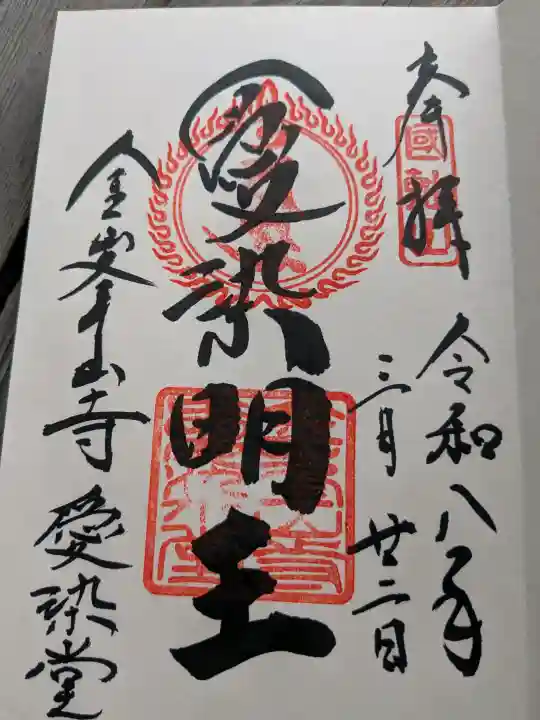 奉拝
國軸山
令和八年
三月廿二日
愛染明王
金峯山寺 愛染堂